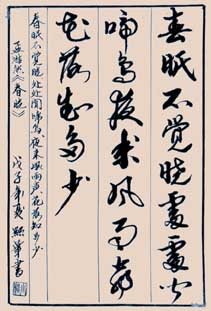 春眠不觉晓處處闻
啼鸟夜来风雨声
花落知多少
春眠不觉晓处处闻啼鸟夜来风雨声花落知多少
孟浩然《春晓》
戊子年夏 书